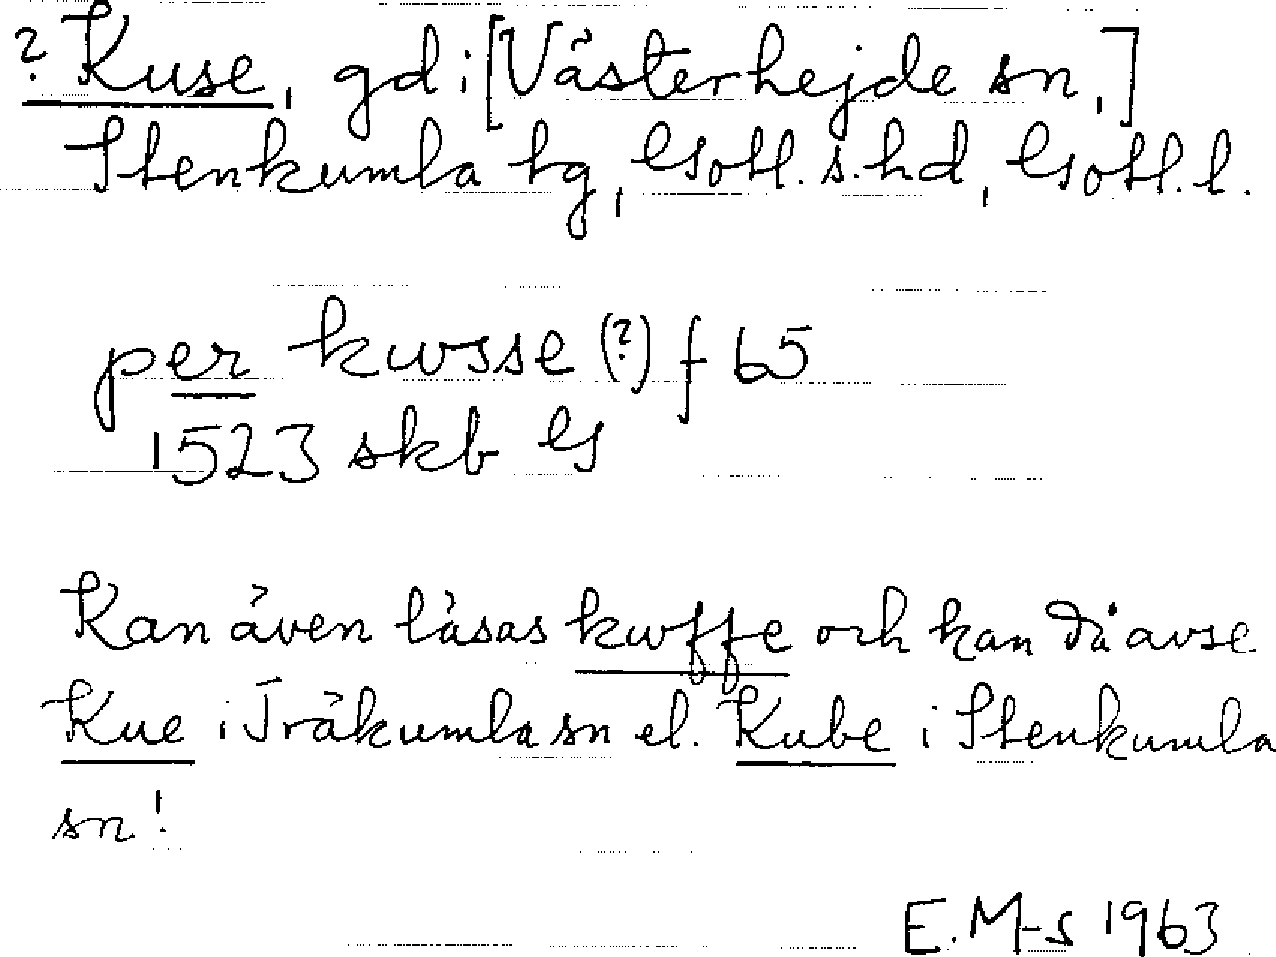 ? Kuse, gd i [Västerhejde sn,]
Stenkumla tg, Gotl. s. hd, Gotl. l.
per kwsse (?) f 65
1523 skb G
Kan även läsas kwffe och kan då avse
Kue i Träkumla sn el. Kube i Stenkumla
sn!
E. M-s 1963